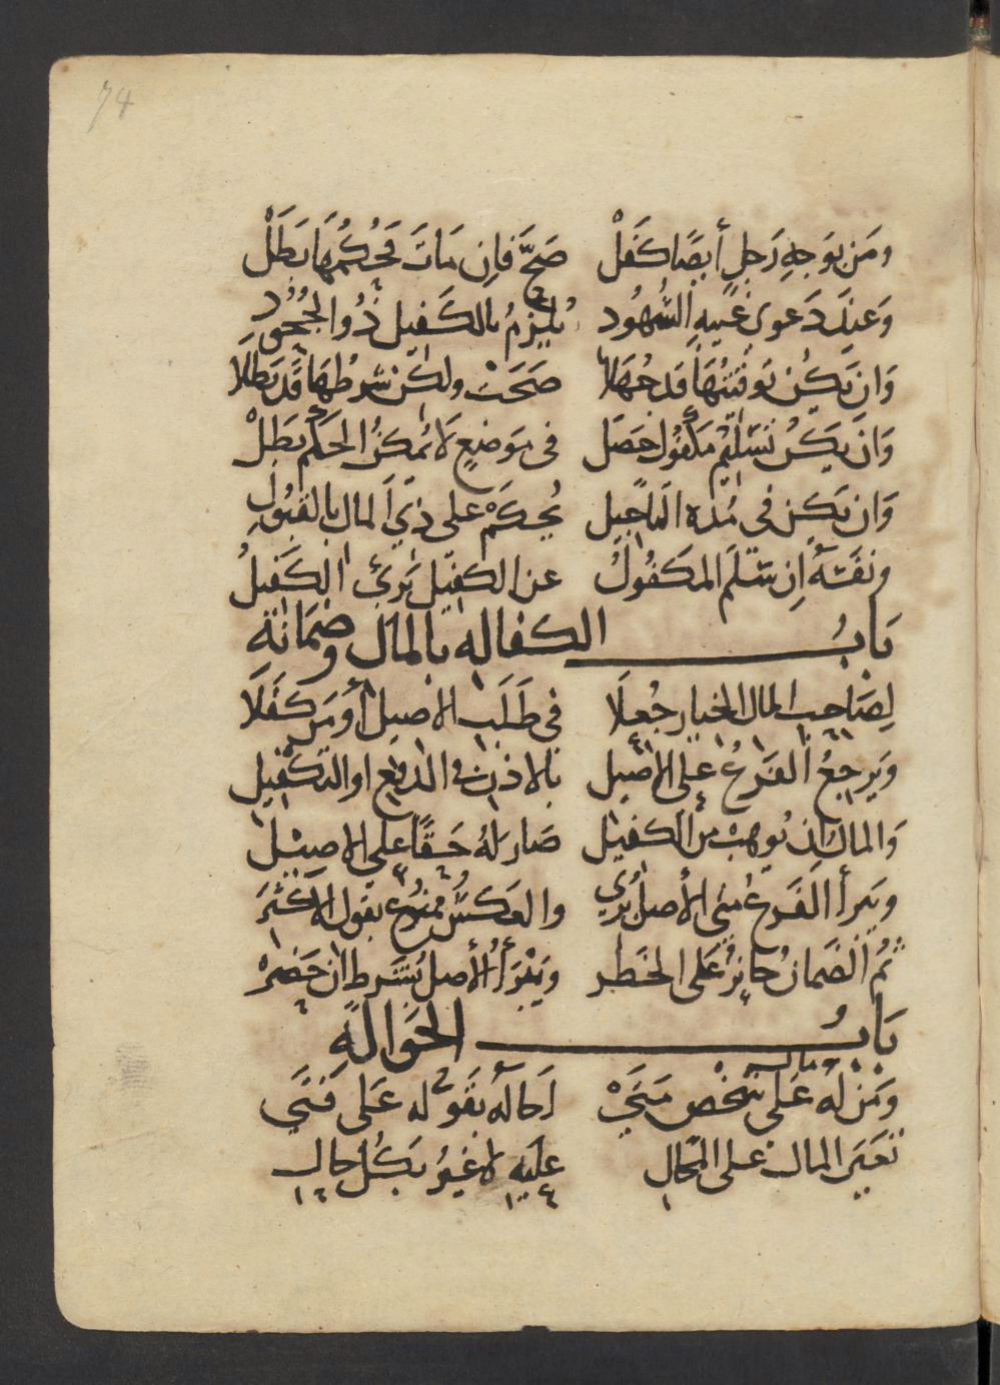 74
وَمَن بوَجهِ رَجلٍ أيضًا كفَلْ صَحَّ فَإن مَاتَ فحُكمُهَا بَطَلْ
وَعِندَ دَعوى غَيبهِ الشهُود يُلزمُ بالكَفيل ذُوا الجُحُود
وَان يَكُن تَوقيتُهَا قد جُهَلا صَحَتْ ولكن شرطُهَا قَد بَطلَا
وَان يَكن تَسَليمُ مكفُول حَصَل في مَوضعٍ لَا يُمكنُ الحكم بَطلْ
وَان يَكن في مُدة التاجيل يُحكَمْ على ذي المال بالقبُولِ
ونفسَهُ اِن سَلَّم المكفُولُ عن الكفيل بَرئَ الكَفيلُ
بَابُ الكفاله بالمال وضمَانِهِ
لِصَاحِب المال الخيار جُعلَا في طَلَب الاصيل أو مَن كفَلَا
وَيرجعُ الفَرعُ على الأصيل بالاذن في الدفع او التكفيل
وَالمال اِن يُوهب من الكفيل صَار لهُ حَقًا على الاصيل
ويَبرأ الفَرعُ متى الأصلُ بُري والعَكسُ ممنُوع بقول الاكثرَ
ثمُ الضَمانُ جائزٌ عَلى الخطر ويَبْرَأ الأصلُ بشَرط ان حَضرْ
بَابُ الحَوالَهِ
وَمَنْ لهُ مال عَلى شخْص مَتَى اَحالهُ بقَوله عَلى فَتَى
تعَيَن المال على المحال عليَهِ لا غيرُ بكُل حال